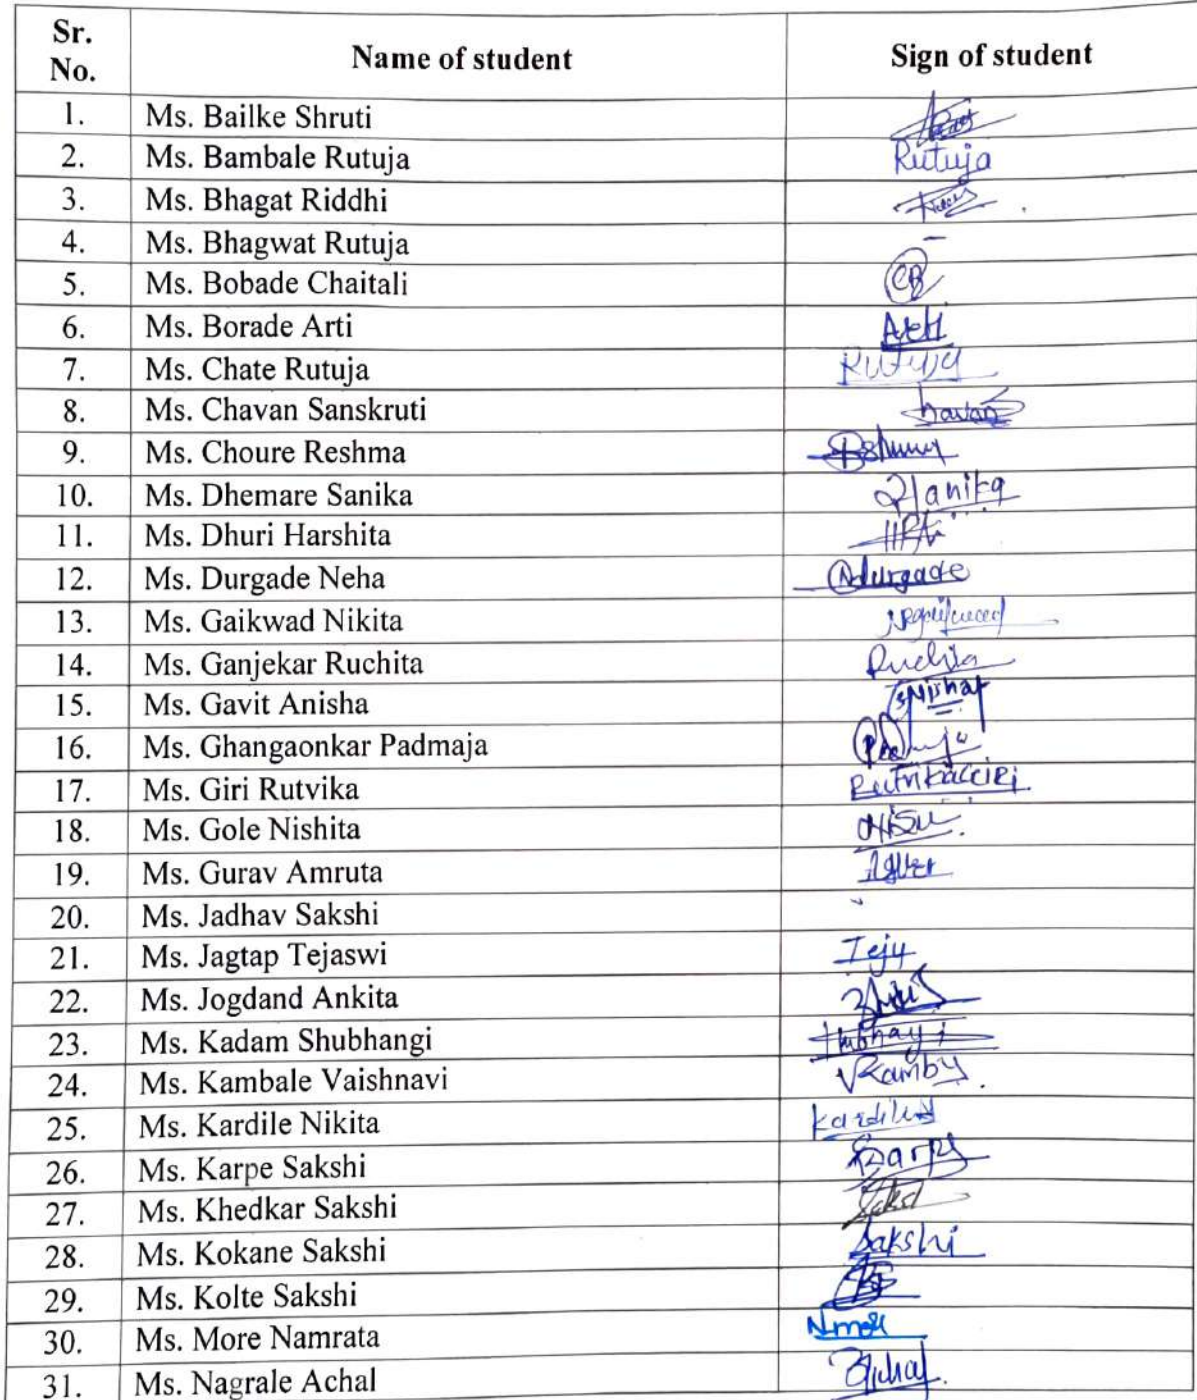 Sr. No. Name of student Sign of student
1. Ms. Bailke Shruti
2. Ms. Bambale Rutuja Rutuja
3. Ms. Bhagat Riddhi
4. Ms. Bhagwat Rutuja -
5. Ms. Bobade Chaitali CB
6. Ms. Borade Arti
7. Ms. Chate Rutuja Rutuja
8. Ms. Chavan Sanskruti
9. Ms. Choure Reshma
10. Ms. Dhemare Sanika
11. Ms. Dhuri Harshita
12. Ms. Durgade Neha Ndurgade
13. Ms. Gaikwad Nikita
14. Ms. Ganjekar Ruchita Ruchita
15. Ms. Gavit Anisha
16. Ms. Ghangaonkar Padmaja
17. Ms. Giri Rutvika
18. Ms. Gole Nishita
19. Ms. Gurav Amruta
20. Ms. Jadhav Sakshi
21. Ms. Jagtap Tejaswi Teju
22. Ms. Jogdand Ankita
23. Ms. Kadam Shubhangi
24. Ms. Kambale Vaishnavi
25. Ms. Kardile Nikita
26. Ms. Karpe Sakshi
27. Ms. Khedkar Sakshi
28. Ms. Kokane Sakshi Sakshi
29. Ms. Kolte Sakshi
30. Ms. More Namrata
31. Ms. Nagrale Achal